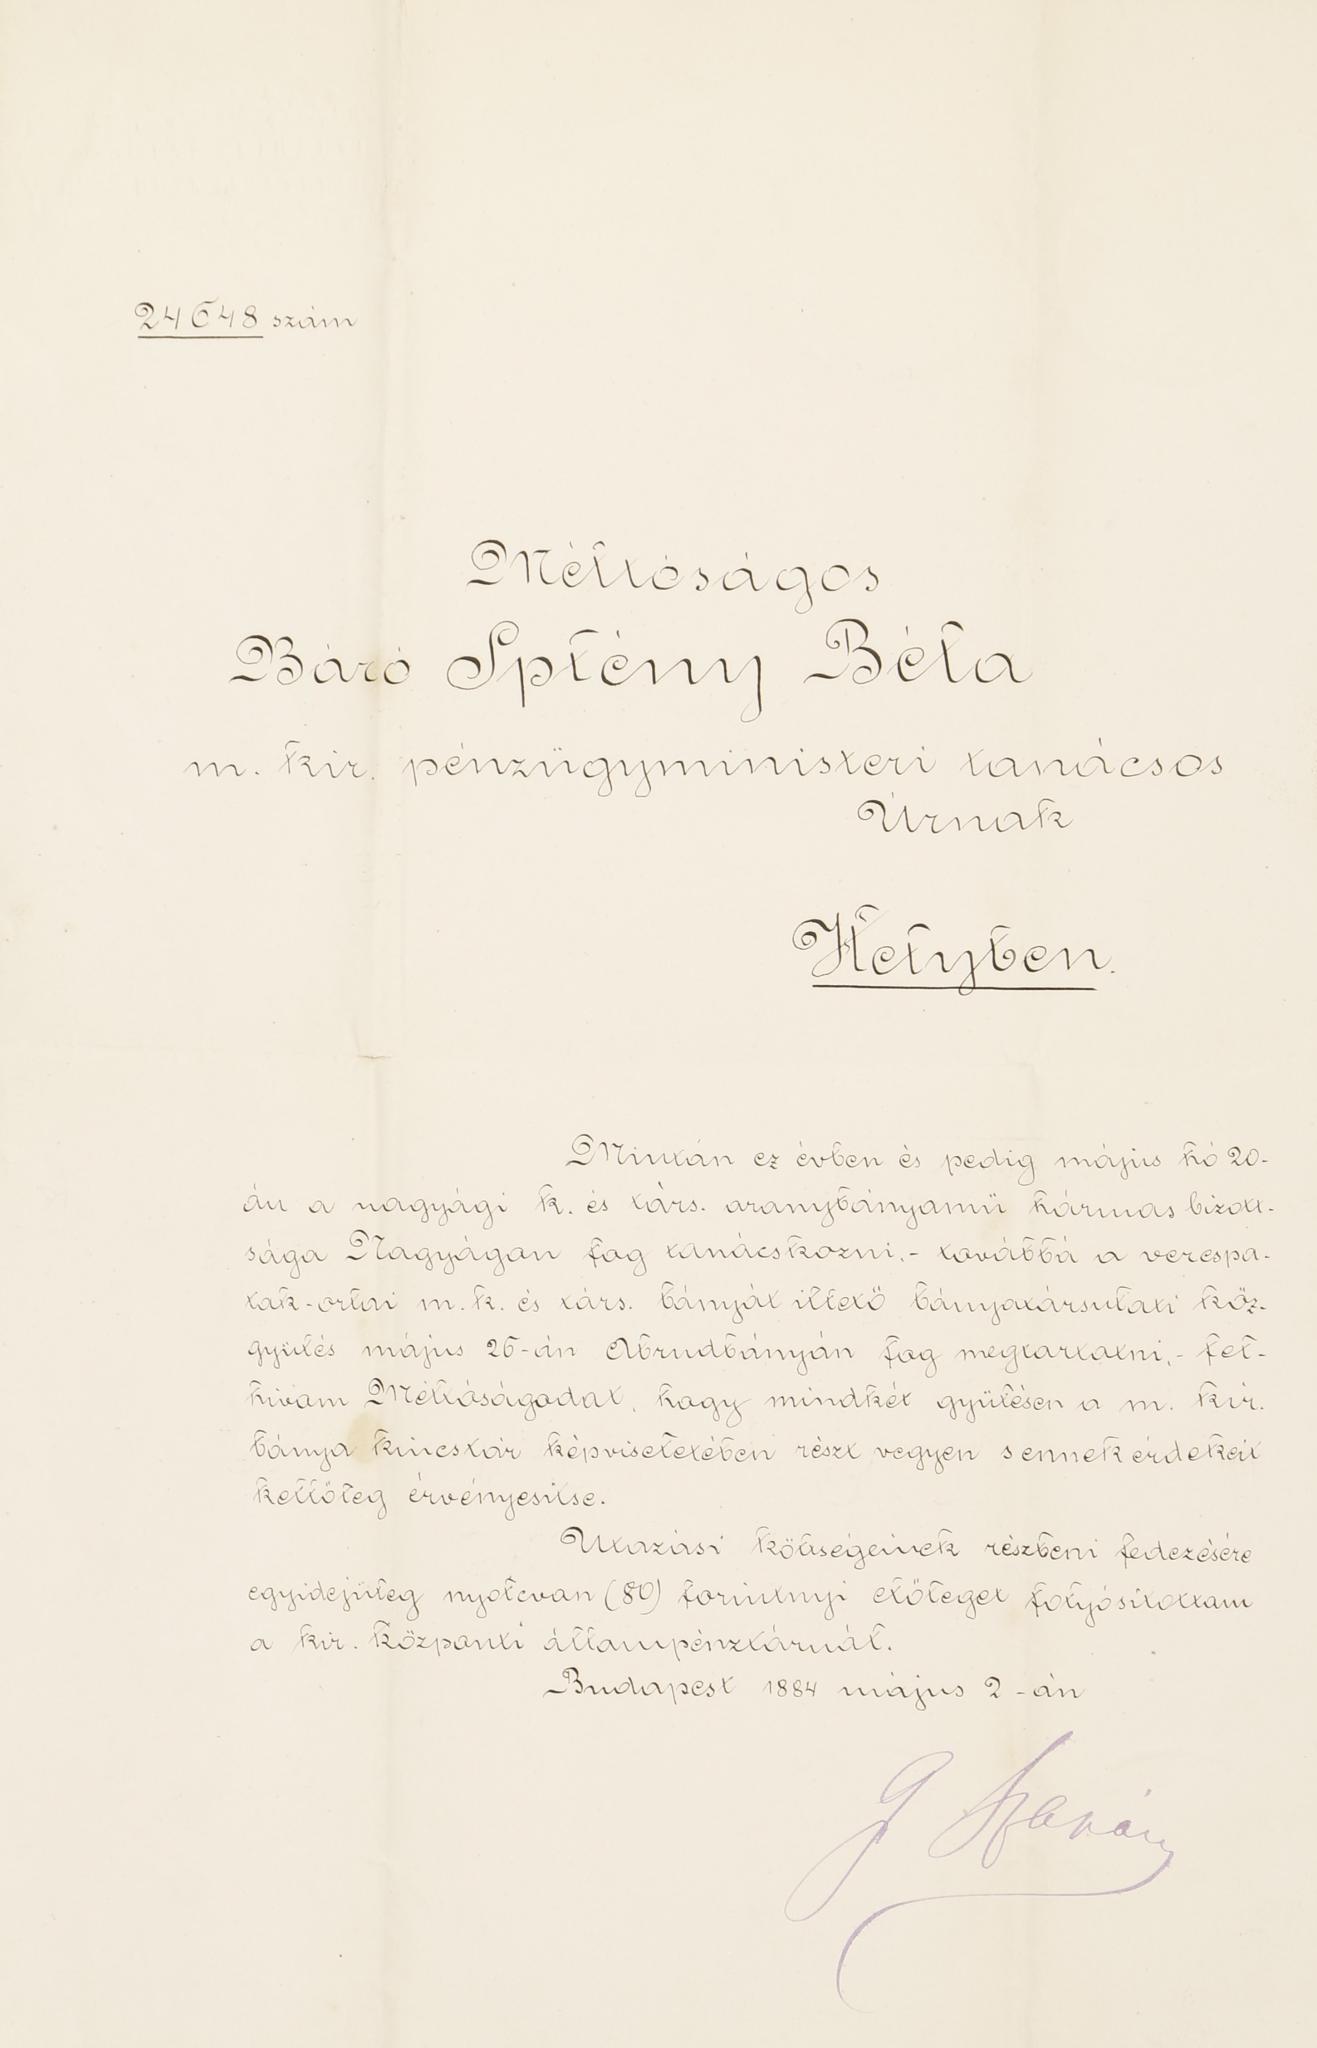 24648 szám
Méltóságos
Báró Splény Béla
m. kir. pénzügyministeri tanácsos
Úrnak
Helyben.
Miután ez évben és pedig május hó 20-
án a nagyági k. és társ. aranybányamű hármas bizott-
sága Nagyágon fog tanácskozni, - továbbá a verespa-
tak-orlai m. k. és társ. bányát illető bányatársulati köz-
gyülés május 26-án Abrudbányán fog megtartatni, - fel-
hivom Méltóságodat, hogy mindkét gyülésen a m. kir.
bánya kincstár képviseletében részt vegyen s ennek érdekeit
kellőleg érvényesitse.
Utazási költségeinek részbeni fedezésére
egyidejűleg nyolcvan (80) forintnyi előleget folyósitottam
a kir. központi állampénztárnál.
Budapest 1884 május 2-án
G Szapáry